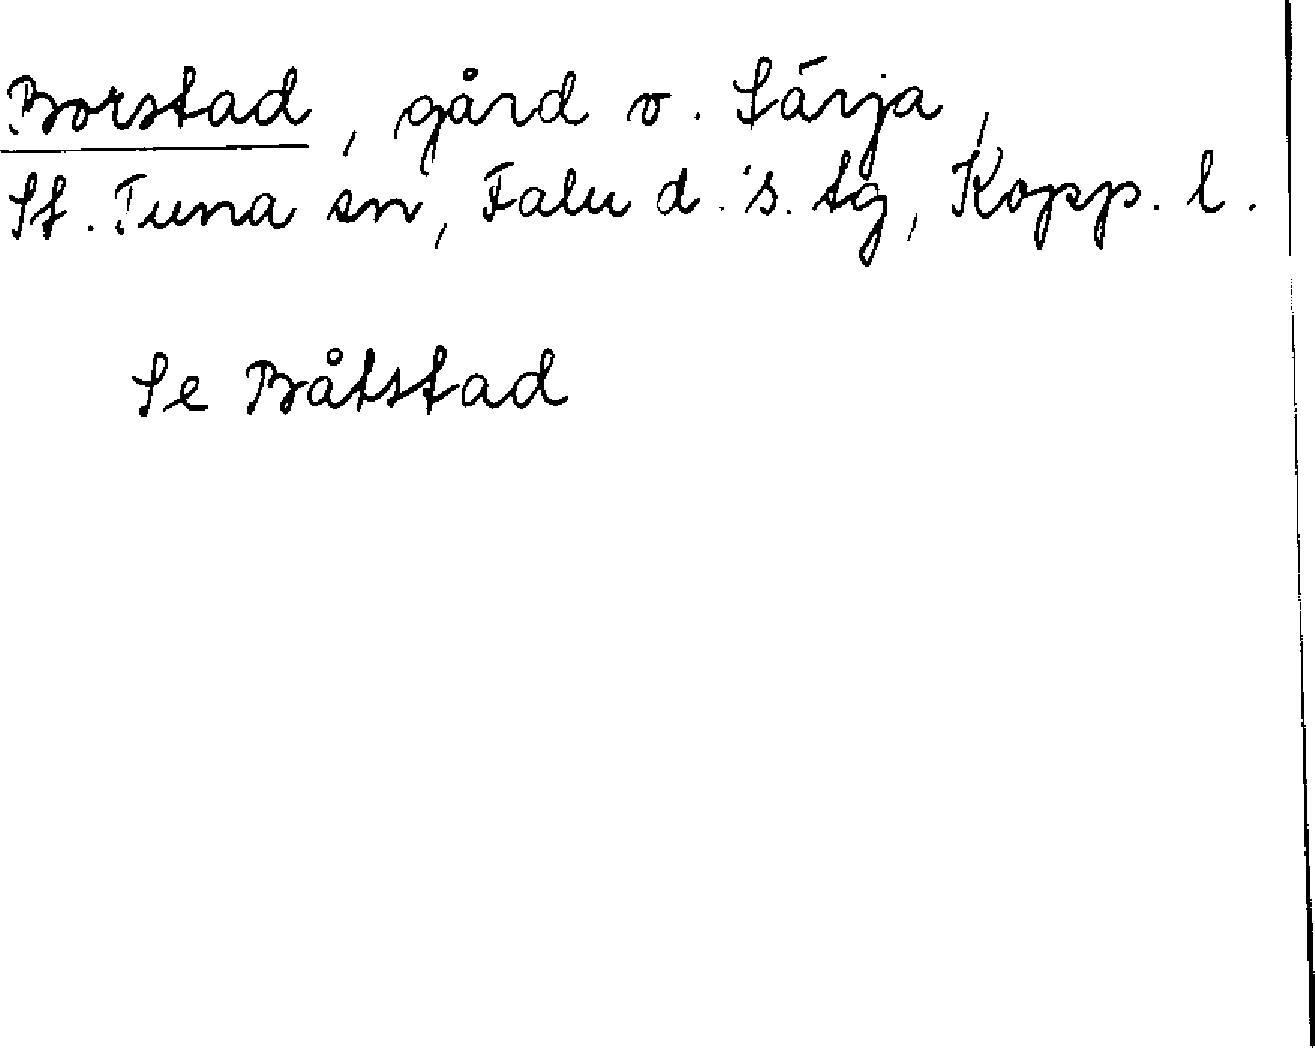 Borstad, gård v. Särja,
St. Tuna sn, Falu d. s. tg, Kopp. l.
Se Båtstad